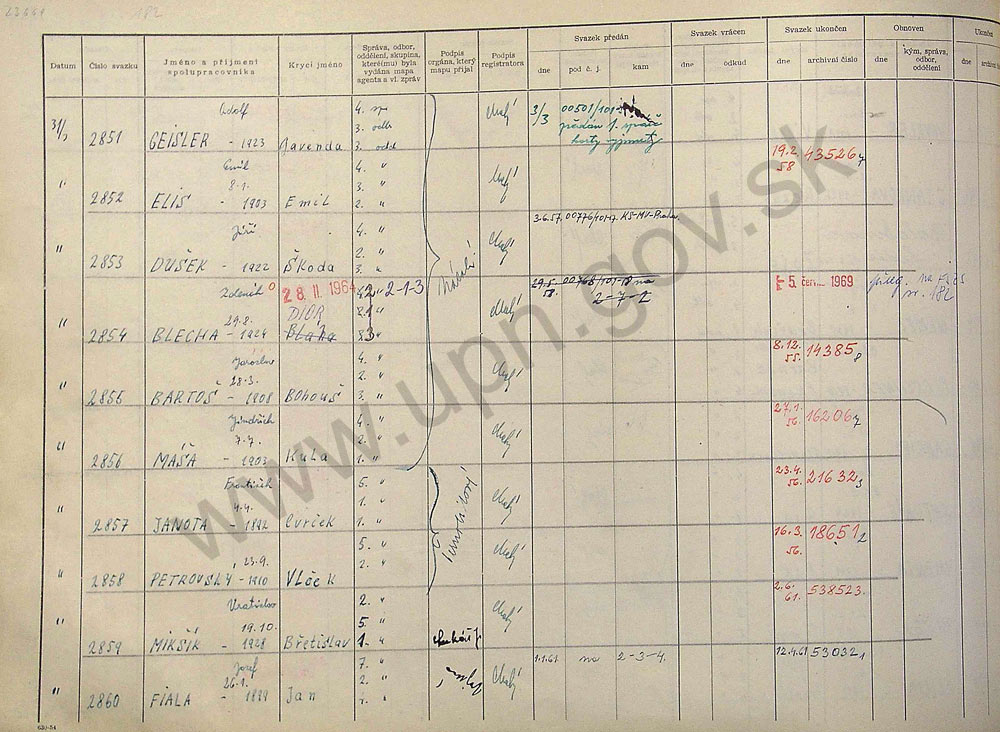 182
Datum
Číslo svazku
Jméno a příjmení
spolupracovníka
Krycí jméno
Správa, odbor,
oddělení, skupina,
které(mu) byla
vydána mapa
agenta a vl. zpráv
Podpis
orgána, který
mapu přijal
Podpis
registratora
Svazek předán
dne
pod č. j.
kam
Svazek vrácen
dne
odkud
Svazek ukončen
dne
archivní číslo
Obnoven
dne
kým, správa,
odbor,
oddělení
dne
Adolf
2851 GEISLER - 1923 Javenda
4. sp
3. odb
3. odd
Malý
3/3 00501/101
předán 1. správě
19.2.
58 43526
Emil
8.1.
2852 ELIŠ - 1903 Emil
4. "
3. "
2. "
Malý
Jiří
2853 DUŠEK - 1922 Škoda
4. "
2. "
3. "
Malý
3.6.57. 00776/101-17. KS-MV-Praha.
Zdeněk
28. II. 1964
2-1-3
DIOR
29.8.
2854 BLECHA - 1924 Bláha
Malý
29.5.
58. 00768/101-18 na
2-7-2
5. červ. 1969
182
Jaroslav
28.3.
2855 BARTOŠ - 1908 Bohouš
4. "
2. "
3. "
Malý
8.12.
55. 14385
8
Jindřich
7.7.
2856 MÁŠA - 1903 Kula
4. "
2. "
1. "
Malý
27.1.
56. 16206
7
František
4.4.
2857 JANOTA - 1892 Cvrček
5. "
1. "
1. "
Malý
23.4.
56. 21632
3
23.9.
2858 PETROVSKÝ - 1910 Vlček
5. "
2. "
Malý
16.3.
56. 18651
2
Vratislav
19.10.
2859 MIKŠÍK - 1928 Břetislav
2. "
5. "
1. "
Malý
2.6.
61. 538523
Josef
26.1.
2860 FIALA - 1899 Jan
7. "
2. "
Malý
1.1.61. na 2-3-4.
12.4.61 53032
1
www.upn.gov.sk